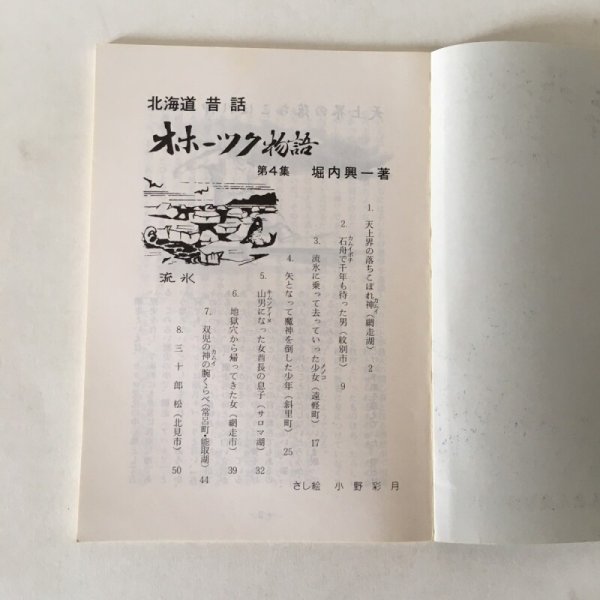 北海道 昔話
オホーツク物語
第4集 堀内興一著
流氷
1. 天上界の落ちこぼれ神(カムイ)(網走湖) 2
2. 石舟(カムイポチ)で千年も待った男(紋別市) 9
3. 流氷に乗って去っていった少女(メノコ)(遠軽町) 17
4. 矢となって魔神を倒した少年(斜里町) 25
5. 山男(キムンアイヌ)になった女酋長の息子(サロマ湖) 32
6. 地獄穴から帰ってきた女(網走市) 39
7. 双児の神(カムイ)の腕くらべ(常呂町・能取湖) 44
8. 三十郎松(北見市) 50
さし絵 小野彩月